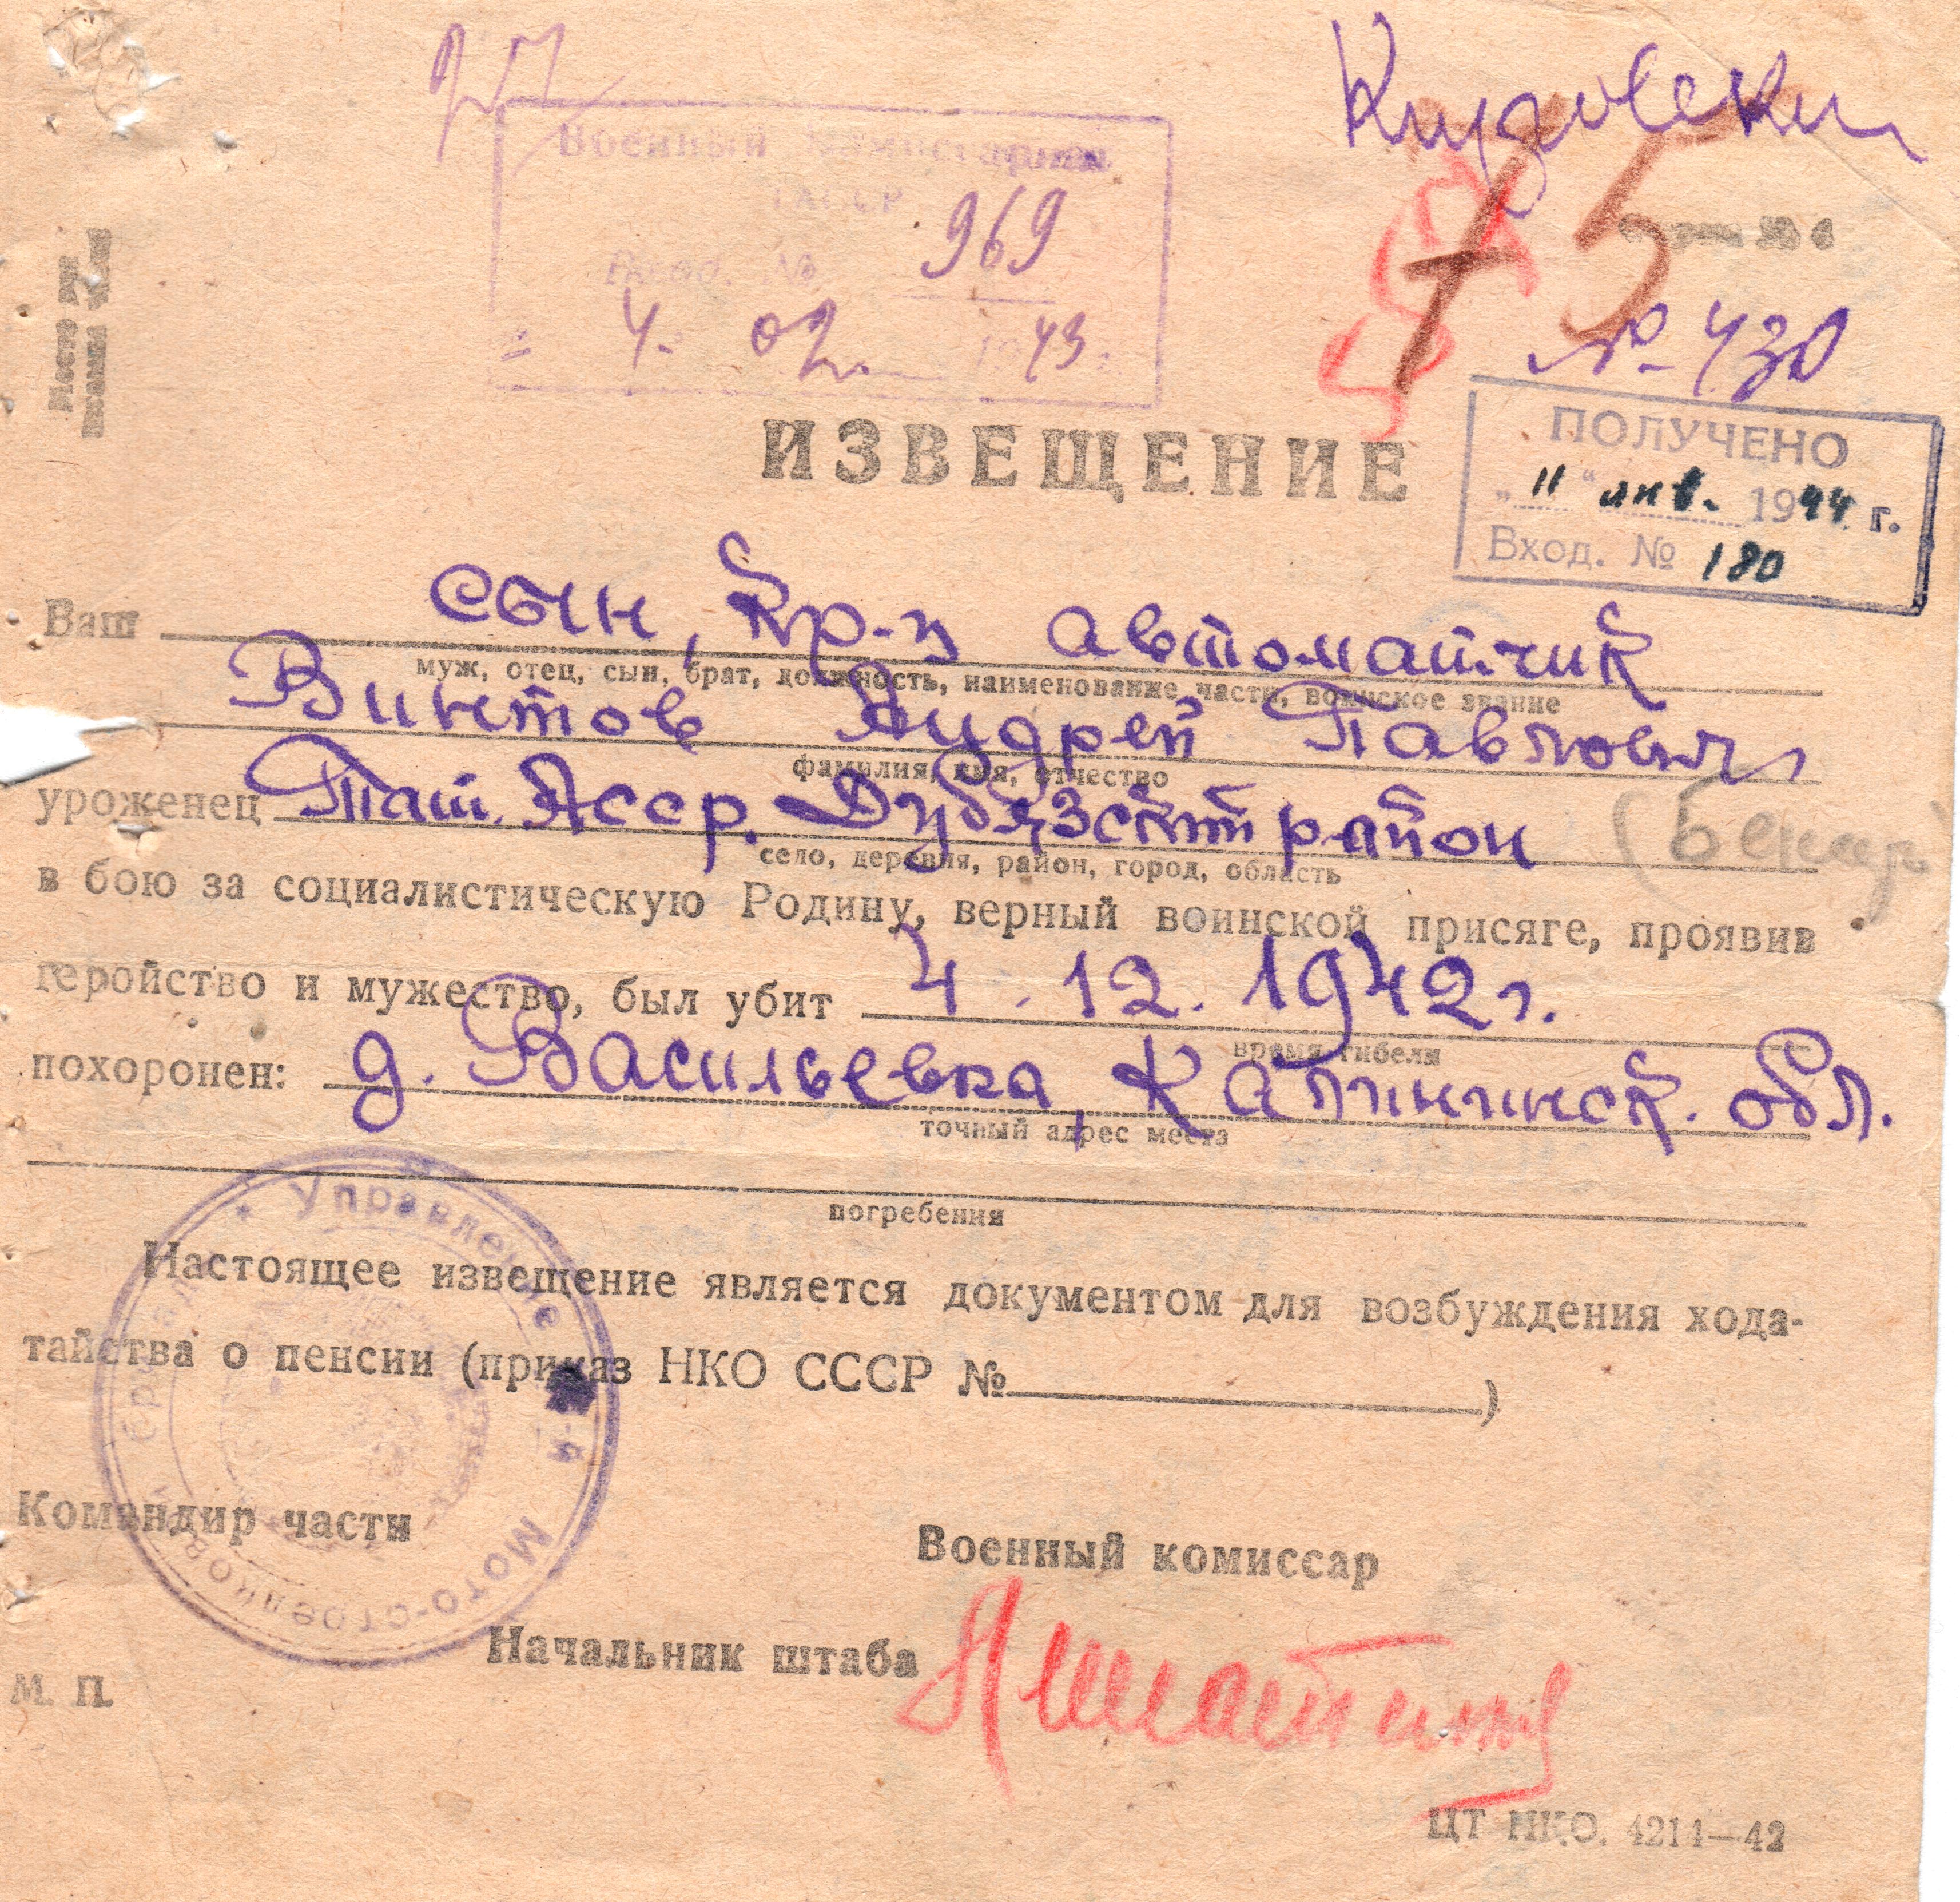 Военный Комиссариат
ТАССР
Вход. № 969
4. 02. 1943 г.
№ 430
ИЗВЕЩЕНИЕ
ПОЛУЧЕНО
„11“ янв. 1944 г.
Вход. № 180
Ваш сын, кр-ц автоматчик
муж, отец, сын, брат, должность, наименование части, воинское звание
Винтов Андрей Павлович
фамилия, имя, отчество
уроженец Тат. Асср. Дубязск район
село, деревня, район, город, область
в бою за социалистическую Родину, верный воинской присяге, проявив
геройство и мужество, был убит 4. 12. 1942 г.
время гибели
похоронен: д. Васильевка, Калининск. обл.
точный адрес места
погребения
Настоящее извещение является документом для возбуждения хода-
тайства о пенсии (приказ НКО СССР № )
Управление
Мото-стрелковой
Командир части
Военный комиссар
Начальник штаба
М. П.
ЦТ НКО. 4211—42